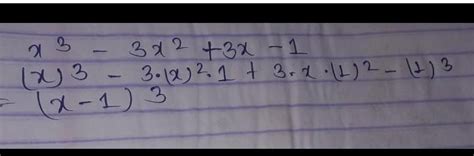 x³ - 3x² + 3x - 1
(x)³ - 3·(x)²·1 + 3·x·(1)² - (1)³
= (x-1)³